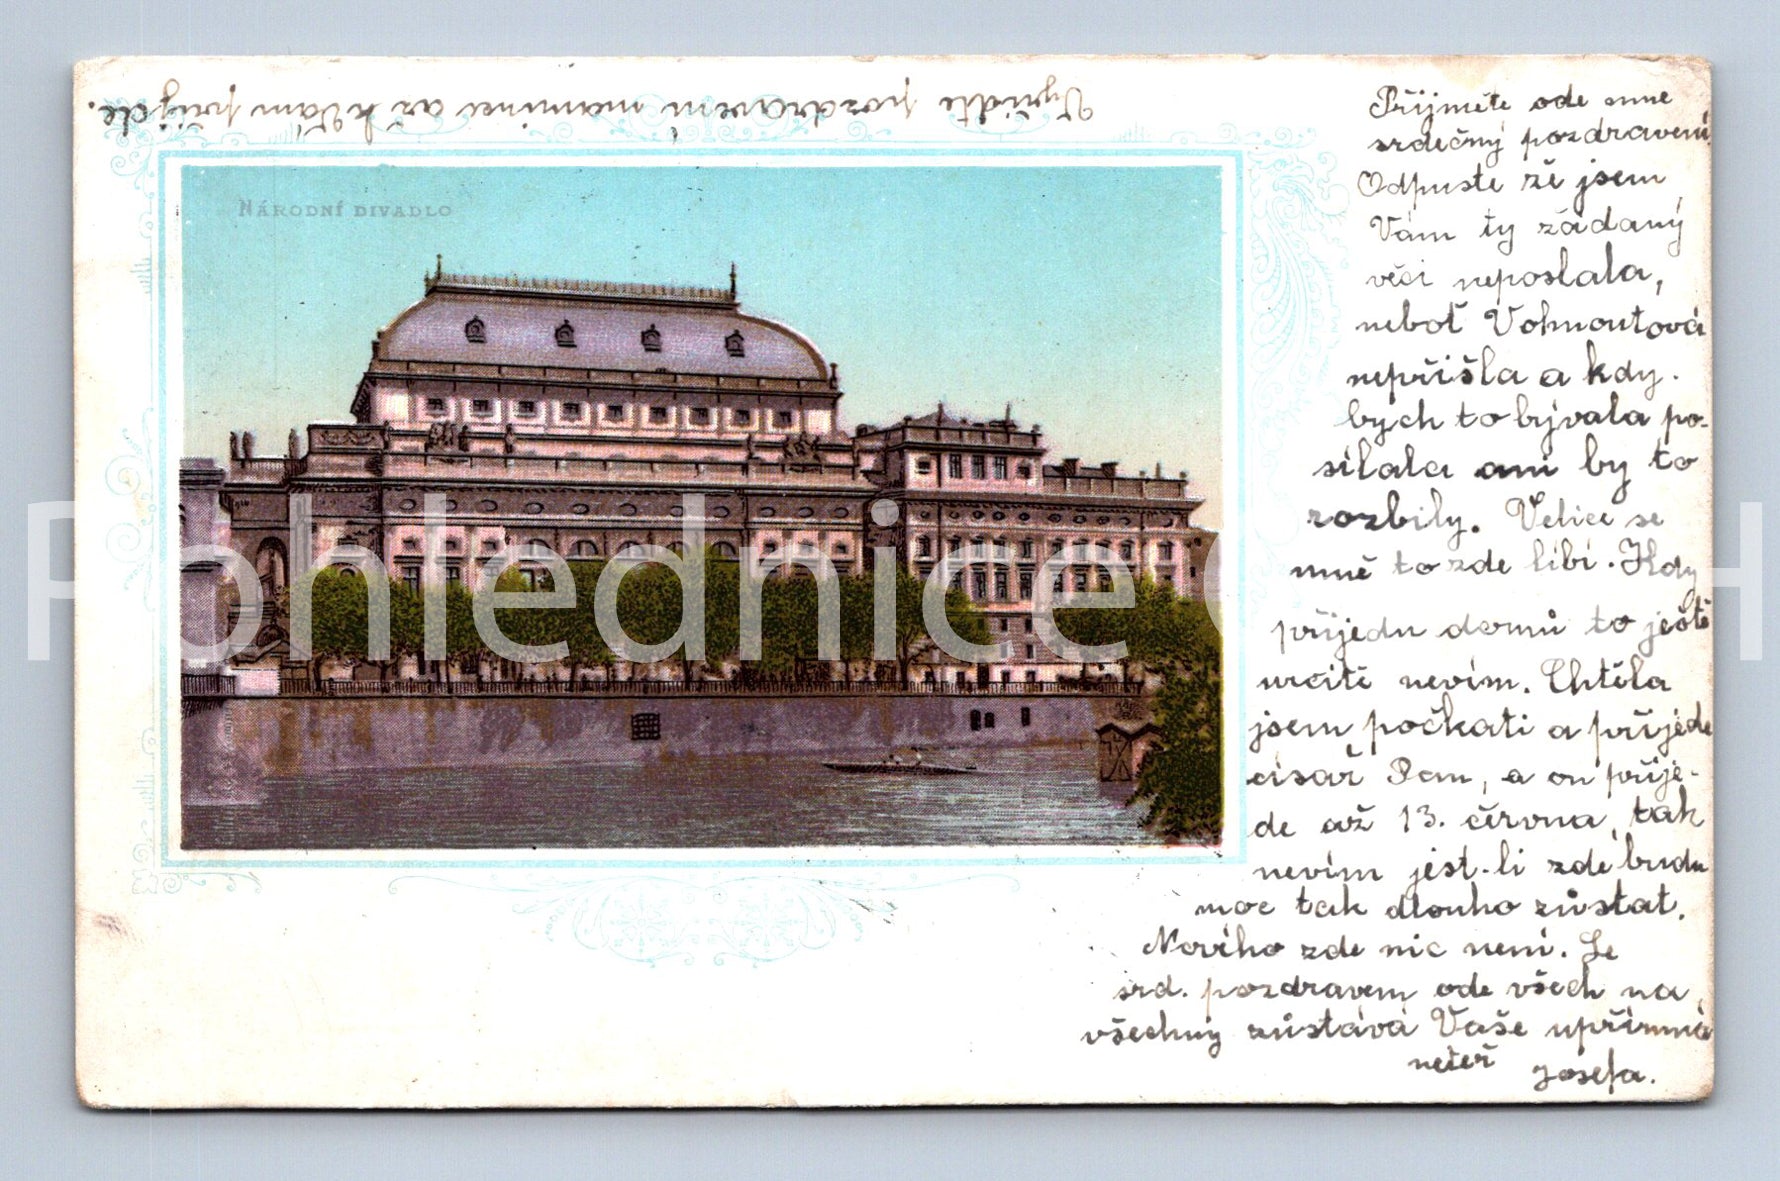 Vyřidte pozdravení mamince až k Vám přijde.
NÁRODNÍ DIVADLO
Přijměte ode mne
srdečný pozdravení.
Odpuste že jsem
Vám ty žádaný
věci neposlala,
neboť Vohnoutová
nepřišla a kdy.
bych to bývala po-
silala oni by to
rozbily. Velice se
mně to zde líbí. Kdy
přijedu domů to ještě
určitě nevím. Chtěla
jsem počkati a přijede
císař Pan, a on přije-
de až 13. června, tak
nevím jest-li zde budu
moc tak dlouho zůstat.
Nového zde nic není. Se
srd. pozdravem ode všech na
všechny zůstává Vaše upřímná
neteř Josefa.
Pohlednice CH